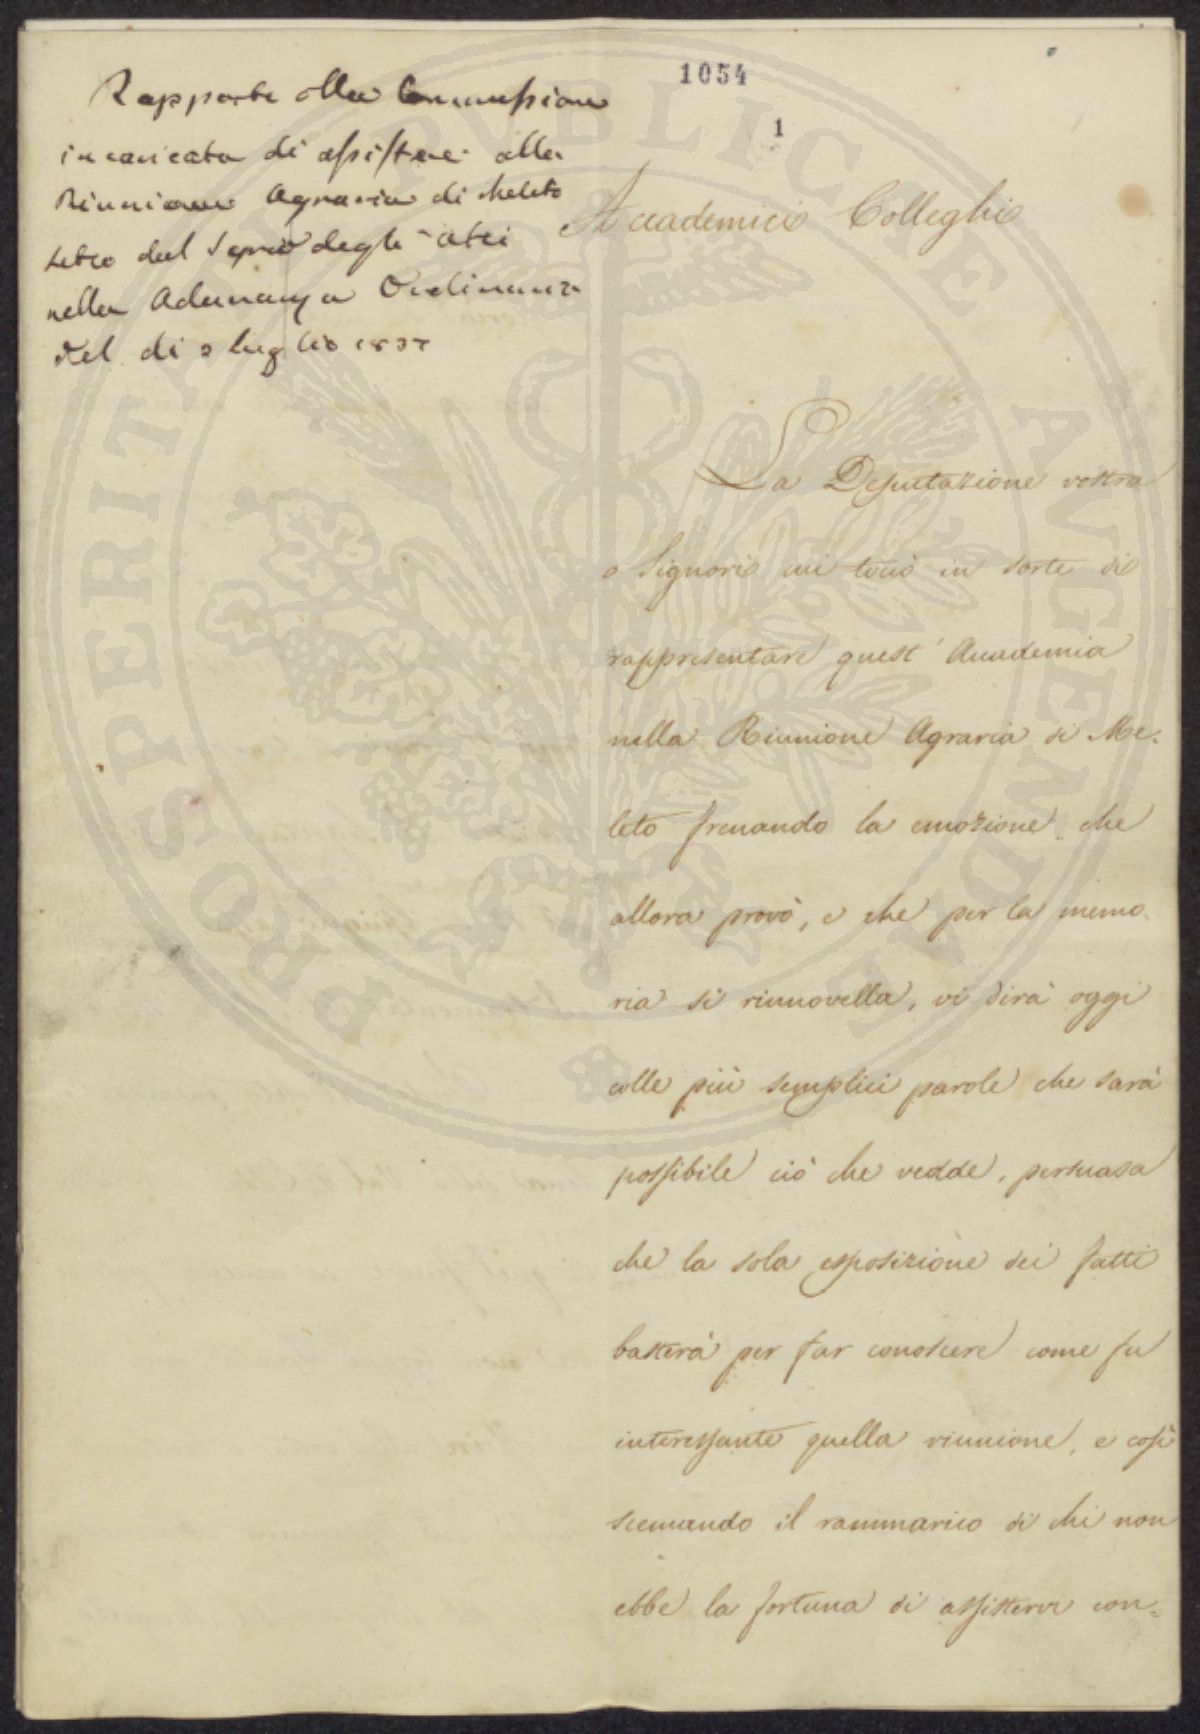 1054
1
Rapporto della Commissione
incaricata di assistere alla
Riunione Agraria di Meleto
letto dal Segrio degli atti
nella Adunanza Ordinaria
del dì 2 luglio 1837
Accademici Colleghi
La Deputazione vostra
o Signori cui toccò in sorte di
rappresentare quest' Accademia
nella Riunione Agraria di Me-
leto frenando la emozione che
allora provò, e che per la memo-
ria si rinnovella, vi dirà oggi
colle più semplici parole che sarà
possibile ciò che vedde, persuasa
che la sola esposizione dei fatti
basterà per far conoscere come fu
interessante quella riunione, e così
scemando il rammarico di chi non
ebbe la fortuna di assistervi con-
PROSPERITATI PVBLICAE AVGENDAE